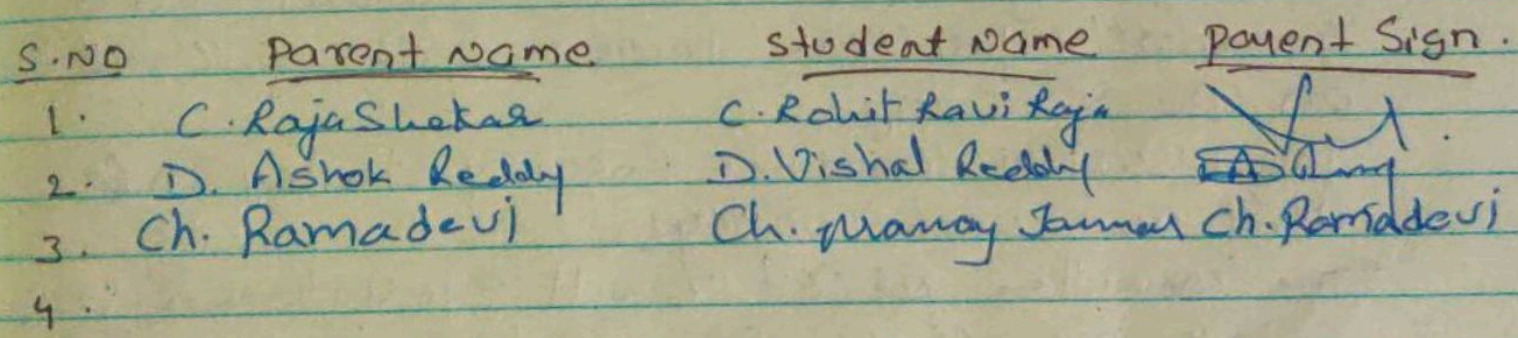 S.NO Parent Name Student Name Parent Sign.
1. C. RajaShekar C. Rohit Ravi Raja
2. D. Ashok Reddy D. Vishal Reddy
3. Ch. Ramadevi Ch. Ch. Ramadevi
4.